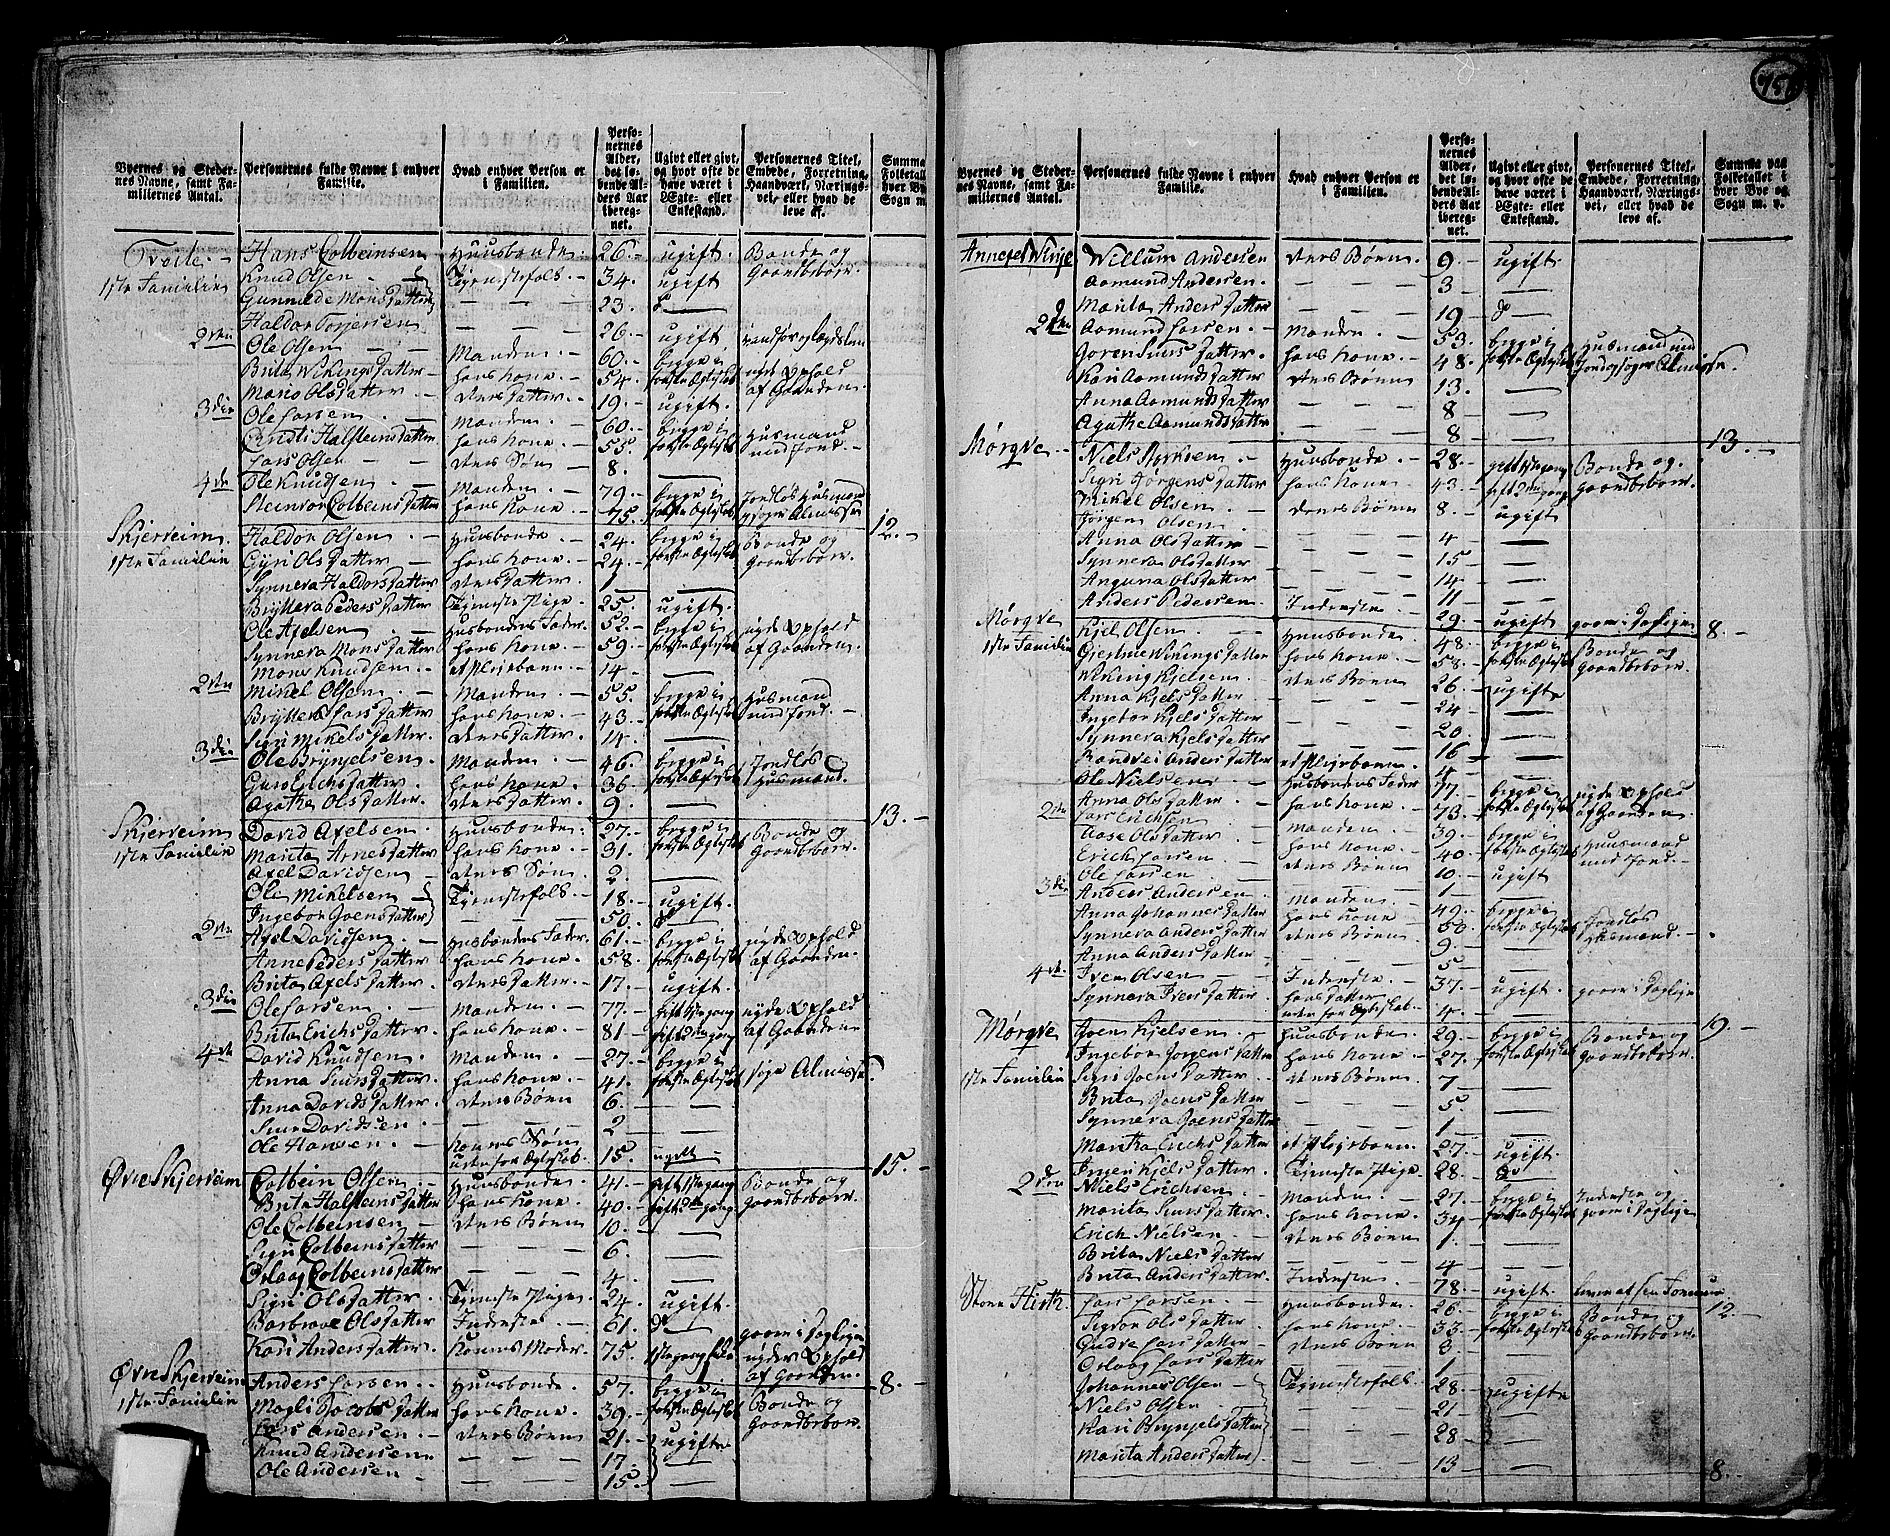 751
Byernes og Steder-
nes Navne, samt Fa-
miliernes Antal.
Personernes fulde Navne i enhver
Familie.
Hvad enhver Person er
i Familien.
Perso-
nernes
Alder,
det lø-
bende Al-
ders Aar
iberegn-
net.
Ugivt eller givt,
og hvor ofte de
have været i
Egte- eller
Enkestand.
Personernes Titel,
Embede, Forretning,
Haandværk, Nærings-
vei, eller hvad de
leve af.
Summa
Folketall
hver By
Sogn m.
Tveite. Hans Colbeinsen Huusbonde 26. ugift. Bonde og
1ste Familie Knud Olsen Tienestefolk 34. ugift Gaardbeboer.
Gunnilde Monsdatter 23. d
Haldor Torjersen 26. ugift
2den Ole Olsen Manden 60. begge i
Brita Vikingsdatter hans Kone 54. første Ægteskab nyde Ophold
Mari Olsdatter deres datter 19. ugift. af Gaarden
3die Ole Larsen Manden 60. begge i Huusmand
Halsteinsdatter hans Kone 55. første Ægteskab med Jord.
Lars Olsen deres Søn 8.
4de Ole Knudsen Manden 79. begge i Jordløs Huusmand
Steinvor Colbeinsdatter hans Kone 75. første Ægteskab Almisse 12.
Skjerveim Haldor Olsen Huusbonde 24. begge i Bonde og
1ste Familie Gyri Olsdatter hans Kone 24. første Ægteskab Gaardbeboer.
Synneva Haldorsdatter deres datter 1
Brytteva Pedersdatter Tieneste Pige 25. ugift.
Ole Axelsen Husbondens Fader 52. begge i nyde Ophold
Synneva Monsdatter hans Kone 59. første Ægteskab af Gaarden
Mons Knudsen et Pleiebarn 14
2den Mikel Olsen Manden 55. begge i Huusmand
Bryttev Larsdatter hans Kone 43. første Ægteskab med Jord.
Siri Mikelsdatter deres datter 14.
3die Ole Brynjelsen Manden 46. begge i Jordløs
Guro Erichsdatter hans Kone 36. første Ægteskab Huusmand.
Agathe Olsdatter deres datter 9. 13.
Skjerveim David Axelsen Huusbonde 27. begge i Bonde og
1ste Familie Marita Arnesdatter hans Kone 31. første Ægteskab Gaardbeboer.
Axel Davidsen deres Søn 2.
Ole Mikelsen Tienestefolk 18. ugift.
Ingebor Joensdatter 50. d
2den Axel Davidsen Husbondens Fader 61. begge i nyde Ophold
Anne Pedersdatter hans Kone 58. første Ægteskab af Gaarden
Brita Axelsdatter deres datter 17. ugift.
3die Ole Larsen Manden 77. gift 1ste gang nyde Ophold
Brita Erichsdatter hans Kone 81. gift 2den gang af Gaarden
4de David Knudsen Manden 27. begge i
Anna Siursdatter hans Kone 41. første Ægteskab søge Almisse.
Anna Davidsdatter deres Børn 6.
Siur Davidsen 2
Ole Hansen Konens Søn 15. ugift
uden for Ægteskab 15.
Øvre Skjerveim Colbein Olsen Huusbonde 41. gift 1ste gang Bonde og
Brita Halsteinsdatter hans Kone 40. gift gang Gaardbeboer.
Ole Colbeinsen deres Børn 10.
Siri Colbeinsdatter 6.
Oslaag Colbeinsdatter 4.
Siri Olsdatter Tieneste Pige 24. ugift.
Barbrave Olsdatter Inderste 61. d
Kari Andersdatter Konens Moder 75. nyder Ophold
af Gaarden 8.
Øvre Skjerveim Anders Larsen Huusbonde 57. begge i Bonde og
1ste Familie Magli Jacobsdatter hans Kone 39. første Ægteskab Gaardbeboer.
Lars Andersen deres Børn 21. ugifte
Knud Andersen 17.
Ole Andersen 15.
Byernes og Steder-
nes Navne, samt Fa-
miliernes Antal.
Personernes fulde Navne i enhver
Familie.
Hvad enhver Person er
i Familien.
Perso-
nernes
Alder,
det lø-
bende Al-
ders Aar
iberegn-
net.
Ugivt eller givt,
og hvor ofte de
have været i
Egte- eller
Enkestand.
Personernes Titel,
Embede, Forretning,
Haandværk, Nærings-
vei, eller hvad de
leve af.
Summa paa
Folketallet i
hver Bye og
Sogn m. v.
Willum Andersen deres Børn 9. ugift.
Aamund Andersen 3
Marita Andersdatter 19 d
2den Aamund Larsen Manden 53. begge i Husmand med
Joren Siursdatter hans Kone 48. første Ægteskab Jord søger Almisse.
Kari Aamundsdatter deres Børn 13.
Anna Aamundsdatter 8
Agathe Aamundsdatter 8 13.
Mørqve Niels Styrksen Huusbonde 28. gift 1ste gang Bonde og
Siri Jørgensdatter hans Kone 43. gift 2den gang Gaardbeboer.
Mikel Olsen deres Børn 8. ugift
Jørgen Olsen
Anna Olsdatter 4
Synneva Olsdatter 15
Anguna Olsdatter 14
Anders Pedersen Inderste 11
29 ugift 8.
Mørqve Kjel Olsen Huusbonde 48. begge i Bonde og
1ste Familie Gjertrue Vikingsdatter hans Kone 58. første Ægteskab Gaardbeboer.
Viking Kjelsen deres Børn 26. ugifte
Anna Kjelsdatter 24
Ingebor Kjelsdatter 20
Synneva Kjelsdatter 16
Randvei Andersdatter et Pleiebarn 4
Ole Nielsen Husbondens Fader 77. begge i nyde Ophold
Anna Olsdatter hans Kone 73. første Ægteskab af Gaarden.
2den Lars Erichsen Manden 39. begge i Huusmand
Aase Olsdatter hans Kone 40. første Ægteskab med Jord.
Erich Larsen deres Børn 10. ugift
Ole Larsen 1
3die Anders Andersen Manden 49. begge i Jordløs
Anna Johannesdatter hans Kone 50. første Ægteskab Huusmand.
Synneva Andersdatter deres Børn 9
Anna Andersdatter 5
4de Iver Olsen Inderste 37. ugift.
Synneva Iversdatter hans datter
uden for Ægteskab 4 19.
Mørqve Joen Kjelsen Huusbonde 29. begge i Bonde og
Ingebor Jørgensdatter hans Kone 27. første Ægteskab Gaardbeboer.
1ste Familie Siri Joensdatter deres Børn 7
Brita Joensdatter 5.
Synneva Joensdatter 1
Martha Erichsdatter et Pleiebarn 27. ugift.
Kjelsdatter Tieneste Pige 28. d
2den Niels Erichsen Manden 27. begge i Inderste og
Marita Siursdatter hans Kone 34. første Ægteskab
Erich Nielsen deres Børn 7.
Brita Nielsdatter 4
Brita Andersdatter Inderste 78. ugift 12.
Store Hirth. Lars Larsen Huusbonde 26. begge i Bonde og
Sigvor Olsdatter hans Kone 33. første Ægteskab Gaardbeboer.
Gudve Larsdatter deres Børn 3.
Oslaag Larsdatter 1
Johannes Olsen Tienestefolk 28. ugifte
Niels Olsen 21
Kari Brynjelsdatter 28.
Marita Andersdatter 13 8.